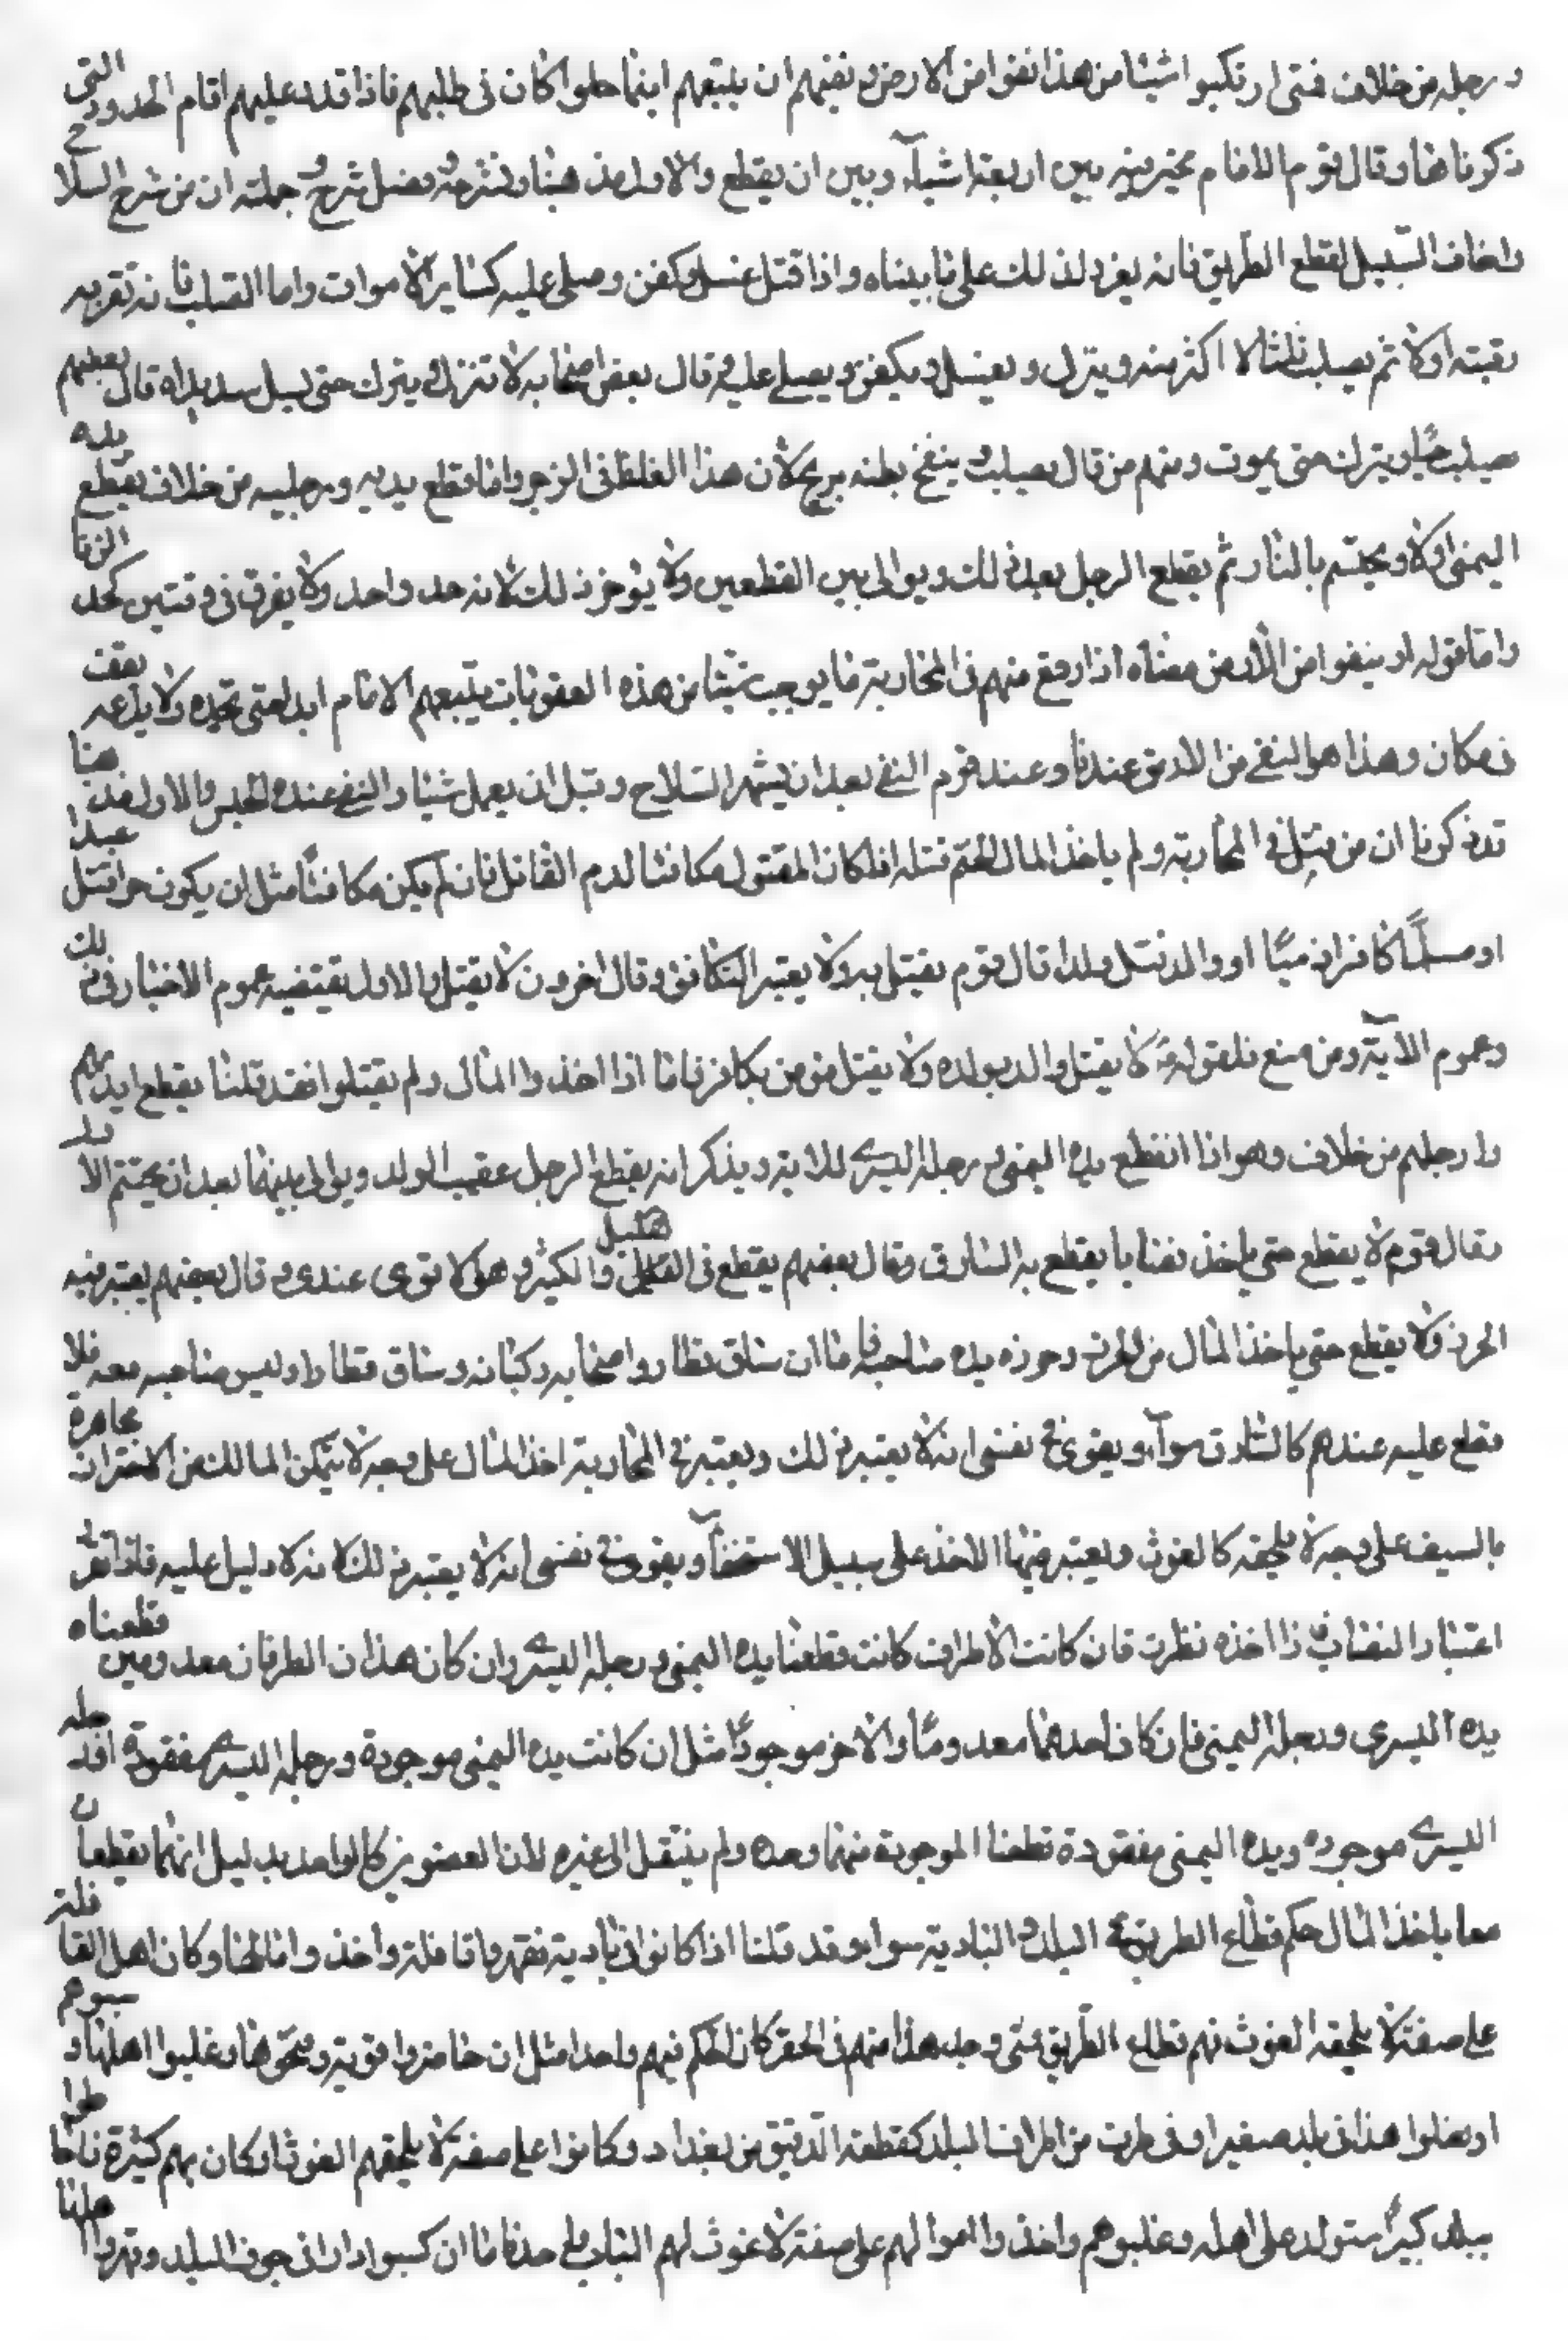 و رجله من خلاف فمتى ارتكبوا شيئا من هذا نفوا من الارض و نفيهم ان يتبعهم اينما حلوا كان فى طلبهم فاذا قدر عليهم اقام الحدود التى
ذكرناها و قال قوم الامام مخير فيه بين اربعة اشياء و بين ان يقطع والاول مذهبنا و نشرحه و فضل شرح و جملته ان من شهر السلا
واخاف السبيل لقطع الطريق فانه يعزر لذلك على ما بيناه و اذا قتل غسل و كفن و صلى عليه كساير الاموات واما الصلب فانه تقريبه
رقبته اولا ثم يصلب ثلثا لا اكثر منه و ينزل و يغسل و يكفن و يصلى عليه و قال بعض اصحابه لا تنزل و يترك حتى يسيل صديداه قال بعضهم
يصلب حيا و يترك حتى يموت و منهم من قال يصلب و ينفخ بطنه بريح لان هذا الغلظ فى الزجر واما قطع يديه و رجليه من خلاف يقطع يده
اليمنى اولا و يحسم بالنار ثم يقطع الرجل بعد ذلك و يوالى بين القطعين ولا يؤخر ذلك لانه حد واحد ولا يفرق فى وقتين كحد الزنا
واما قوله او ينفوا من الارض معناه اذا وقع منهم فى المحاربة ما يوجب شيئا من هذه العقوبات يتبعهم الامام ابدا حتى يجده ولا يدعه يقف
فى مكان و هذا هو النفى من الارض عندنا و عند قوم النفى بعد ان يشهر السلاح و قبل ان يعمل شيئا والنفى عنده الحبس والاول مذهبنا
قد ذكرنا ان من قتل فى المحاربة و لم ياخذ المال انحتم قتله اذا كان المقتول مكافئا لدم القاتل فان لم يكن مكافئا مثل ان يكون حرا قتل عبدا
او مسلما كافرا ذميا او والد قتل ولدا قال قوم يقتل به ولا يعتبر التكافؤ و قال اخرون لا يقتل والاول يقتضيه عموم الاخبار فى ذلك
و عموم الاية و من منع فلقوله ع لا يقتل والد بولده ولا يقتل مؤمن بكافر فاما اذا اخذوا المال ولم يقتلوا فقد قلنا يقطع ايديهم
وارجلهم من خلاف و هو اذا انقطع يده اليمنى و رجله اليسرى للاية و يذكر انه يقطع الرجل عقيب اليد و يوالى بينهما بعد ان يحسم الاول
و قال قوم لا يقطع حتى ياخذ نصابا يقطع به السارق و قال بعضهم يقطع فى القليل والكثير و هو الاقوى عندى و قال بعضهم يعتبر فيه
الحرز ولا يقطع حتى ياخذ المال من الحرز و حرزه يده صاحبه فاما ان ساق قطارا و اصحابه ركبانه و ساق قطارا و ليس صاحبه معه فلا
قطع عليه عندهم كالسارق سواء و يقوى فى نفسى انه لا يعتبر ذلك و يعتبر فى المحاربة اخذ المال على وجه لا يتمكن المالك من الاحتراز مجاهرة
بالسيف على وجه لا يلحقه كالغوث و يعتبر فيها الاخذ على سبيل الاستخفاء و يقوى فى نفسى انه لا يعتبر ذلك لانه لا دليل عليه فاذا تقرر
اعتبار النصاب فاذا اخذه نظرت فان كانت الاطراف كانت قطعنا يده اليمنى و رجله اليسرى وان كان هذان الطرفان معدومين قطعناه
يده اليسرى و رجله اليمنى فان كان احدهما معدوما والاخر موجودا مثل ان كانت يده اليمنى موجودة و رجله اليسرى مفقودة او رجله
اليسرى موجوده و يده اليمنى مفقودة قطعنا الموجودة منهما وحده و لم ينتقل الى غيره لان العضوين كالواحد بدليل انهما يقطعان
معا باخذ المال حكم قطاع الطريق فى البلد و البادية سواء و قد قلنا اذا كانوا فى بادية فقهروا قافلة و اخذوا مالها و كان اهل القافلة
على صفة لا يلحقه الغوث فهم قطاع الطريق متى وجد هذا منهم فى الحضر كان الحكم فيهم واحدا مثل ان حاصروا قرية و فتحوها و غلبوا اهلها و سبوهم
او فعلوا هذا فى بلد صغير او فى طرف من اطراف البلد كقطعة الدقيق من بغداد و كانوا على صفة لا يلحقهم الغوث او كان بهم كثرة فاحاطوا
ببلد كبير استولوا على اهله و غلبوهم واخذوا اموالهم على صفة لا غوث لهم الباب واحد فاما ان كبسوا دارا فى جوف البلد و قهروا اهلها